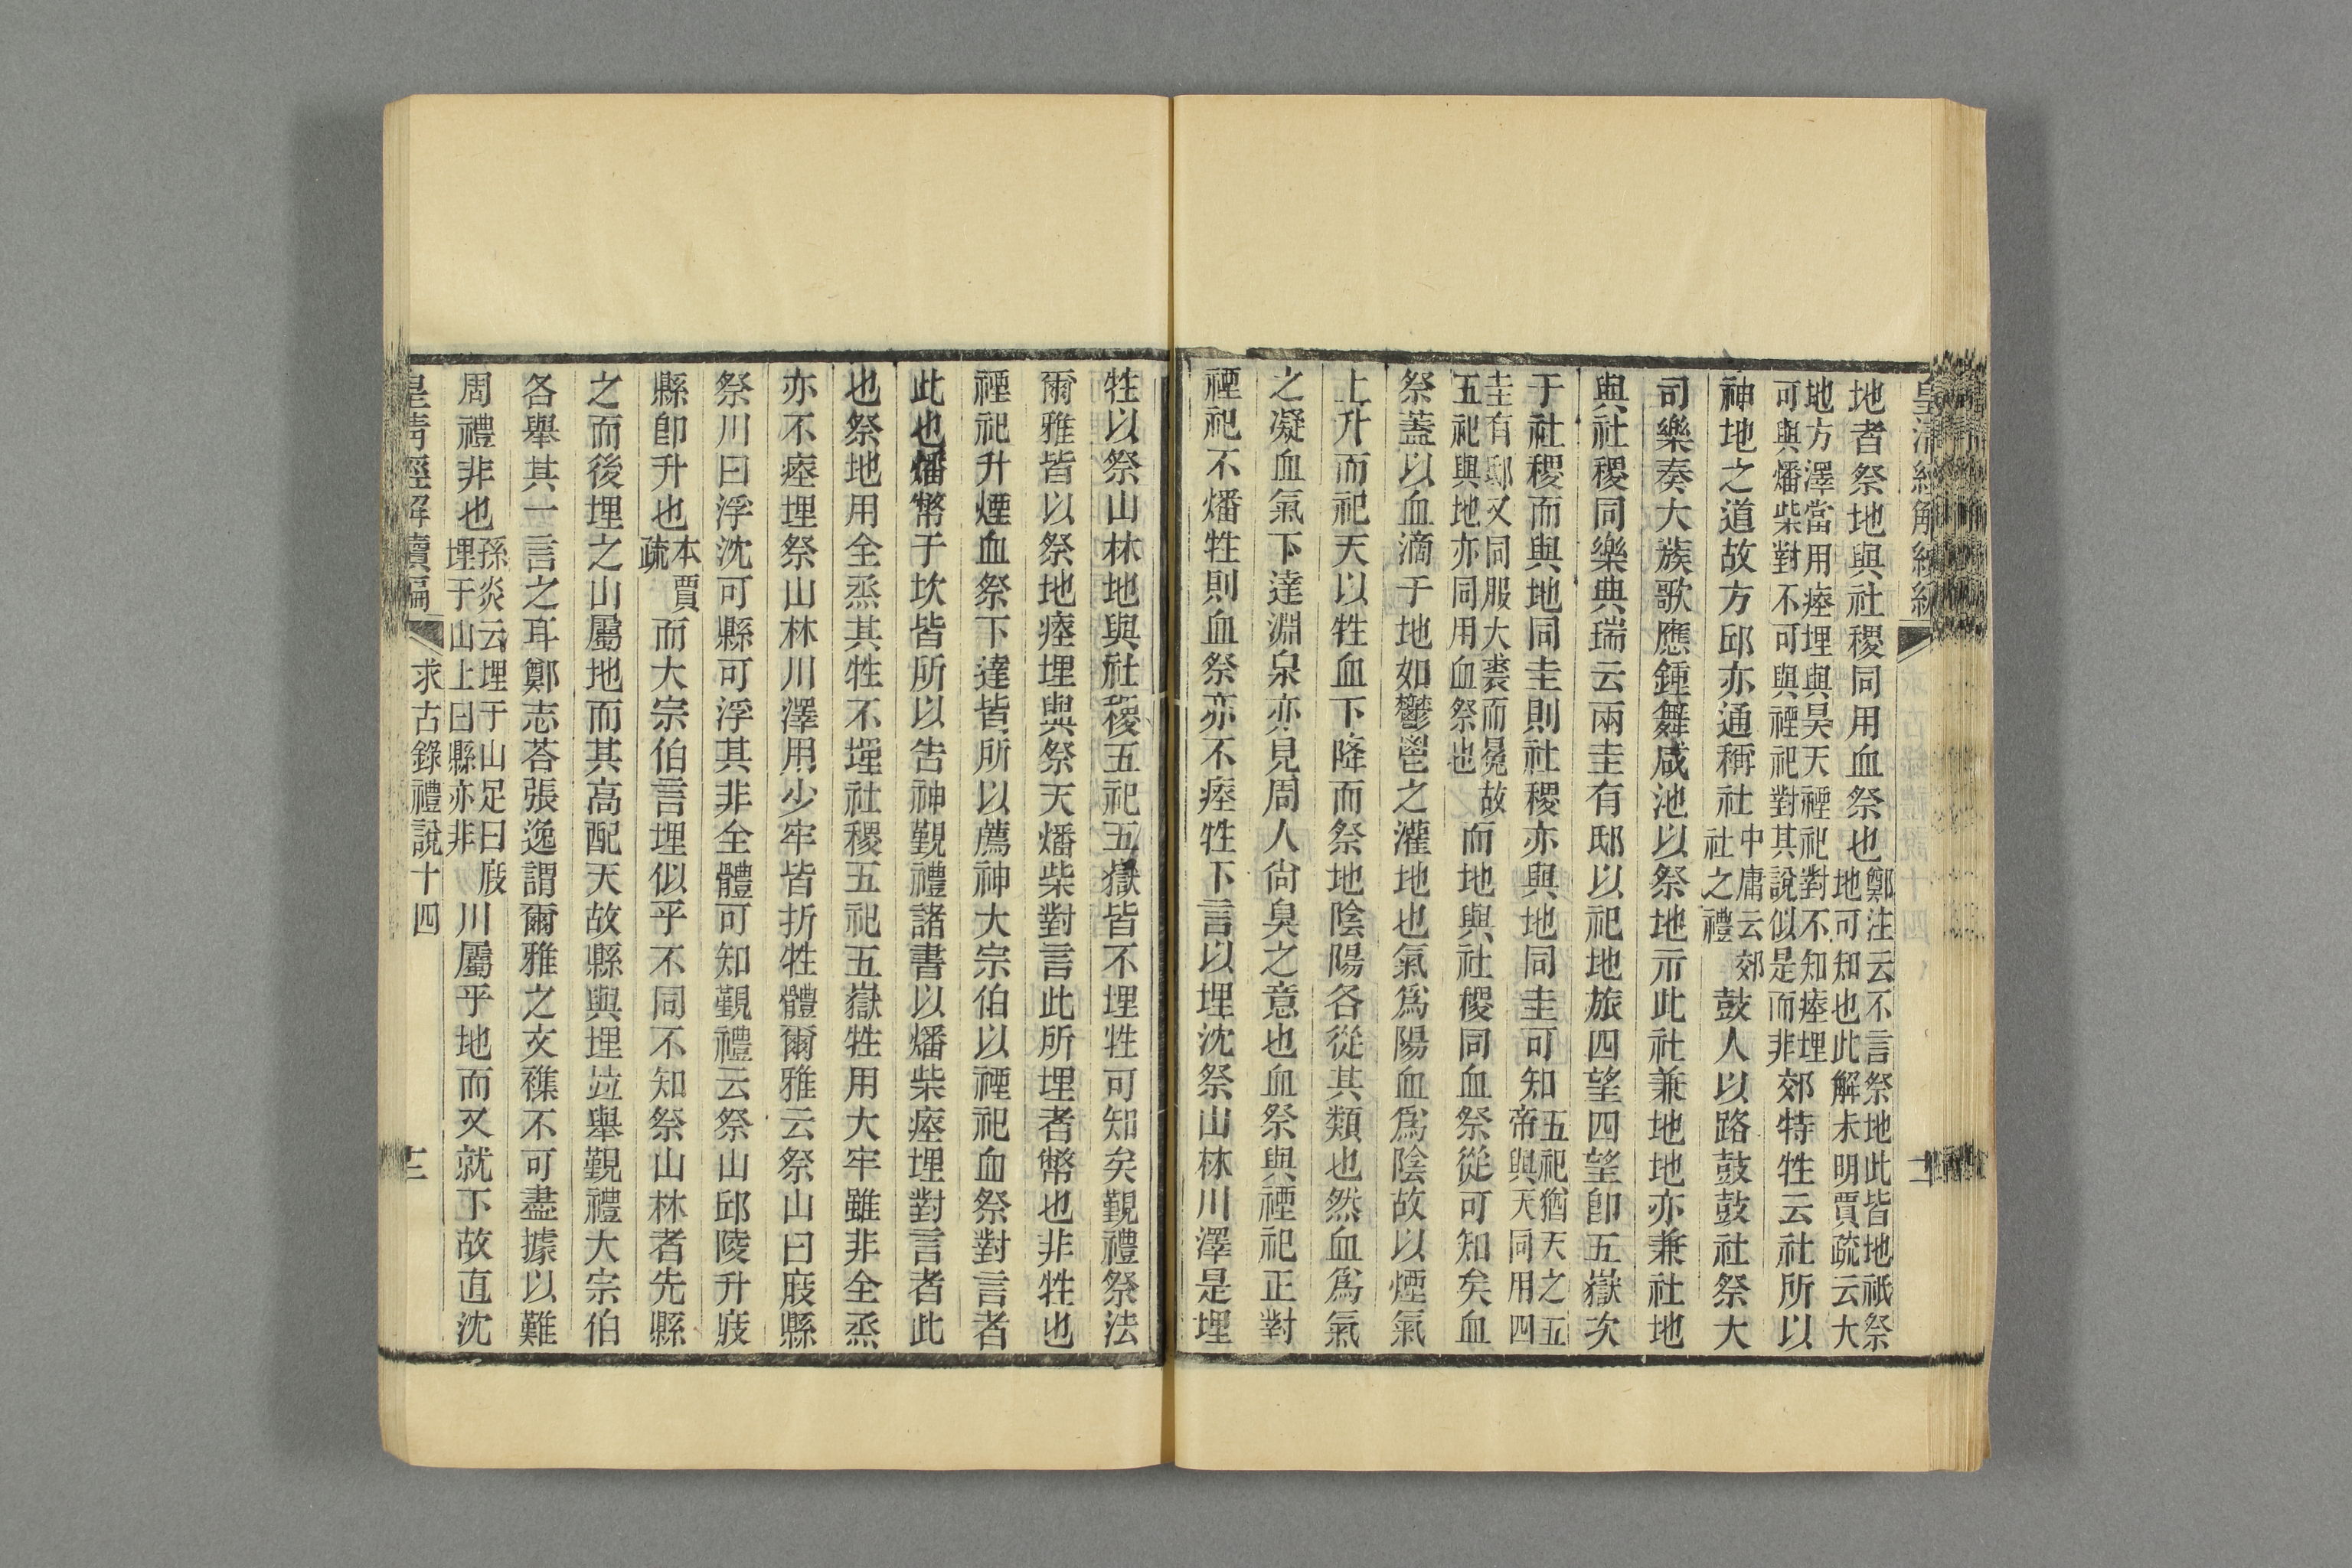 地者祭地與社稷同用血祭也鄭注云不言祭地此皆地祇祭地可知也此解未明賈疏云大
地方澤當用瘞埋與昊天禋祀對不知瘞埋可與燔柴對不可與禋祀對其說似是而非郊特牲云社所以
神地之道故方邱亦通稱社中庸云郊社之禮鼓人以路鼓鼓社祭大
司樂奏大蔟歌應鍾舞咸池以祭地示此社兼地地亦兼社地
與社稷同樂典瑞云兩圭有邸以祀地旅四望四望卽五嶽次
于社稷而與地同圭則社稷亦與地同圭可知五祀猶天之五帝與天同用四
圭有邸又同服大裘而冕故五祀與地亦同用血祭也而地與社稷同血祭從可知矣血
祭蓋以血滴于地如鬱鬯之灌地也氣爲陽血爲陰故以煙氣
上升而祀天以牲血下降而祭地陰陽各從其類也然血爲氣
之凝血氣下達淵泉亦見周人尙臭之意也血祭與禋祀正對
禋祀不燔牲則血祭亦不瘞牲下言以埋沈祭山林川澤是埋
牲以祭山林地與社稷五祀五嶽皆不埋牲可知矣覲禮祭法
爾雅皆以祭地瘞埋與祭天燔柴對言此所埋者幣也非牲也
禋祀升煙血祭下達皆所以薦神大宗伯以禋祀血祭對言者
此也燔幣于坎皆所以告神覲禮諸書以燔柴瘞埋對言者此
也祭地用全烝其牲不埋社稷五祀五嶽牲用大牢雖非全烝
亦不瘞埋祭山林川澤用少牢皆折牲體爾雅云祭山曰庪縣
祭川曰浮沈可縣可浮其非全體可知覲禮云祭山邱陵升庪
縣卽升也本賈疏而大宗伯言埋似乎不同不知祭山林者先縣
之而後埋之山屬地而其高配天故縣與埋竝舉覲禮大宗伯
各舉其一言之耳鄭志荅張逸謂爾雅之文襍不可盡據以難
周禮非也孫炎云埋于山足曰庪埋于山上曰縣亦非川屬乎地而又就下故直沈
皇淸經解續編 求古錄禮說十四